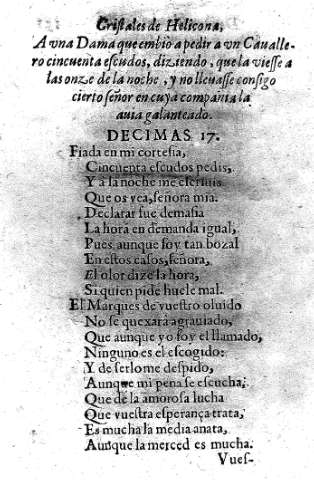 Cristales de Helicona,
A vna Dama que embio a pedir a vn Caualle-
ro cincuenta escudos, diziendo, que la viesse a
las onze de la noche, y no lleuasse consigo
cierto señor en cuya compañia la
auia galanteado.
DECIMAS 17.
Fiada en mi cortesia,
Cincuenta escudos pedis,
Y a la noche me escriuis
Que os vea, señora mia.
Declarar fue demasia
La hora en demanda igual,
Pues aunque soy tan bozal
En estos casos, señora,
El olor dize la hora,
Si quien pide huele mal.
El Marques de vuestro oluido
No se quexarà agrauiado,
Que aunque yo soy el llamado,
Ninguno es el escogido:
Y de serlo me despido,
Aunque mi pena se escucha,
Que de la amorosa lucha
Que vuestra esperança trata,
Es mucha la media anata,
Aunque la merced es mucha.
Vues-